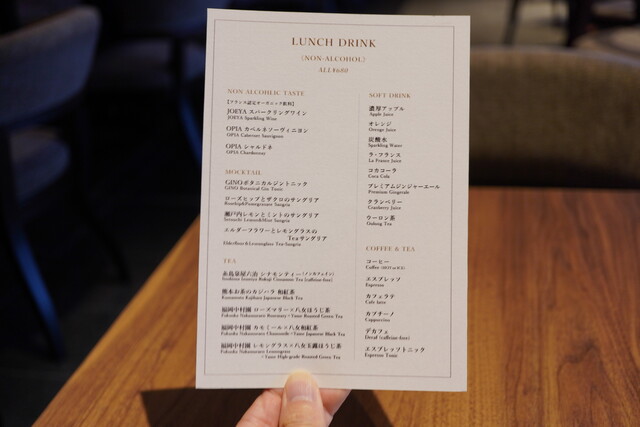 LUNCH DRINK
(NON-ALCOHOL)
ALL ¥680
NON ALCOHLIC TASTE
【フランス認定オーガニック飲料】
JOEYA スパークリングワイン
JOEYA Sparkling Wine
OPIA カベルネソーヴィニヨン
OPIA Cabernet Sauvignon
OPIA シャルドネ
OPIA Chardonnay
MOCKTAIL
GINOボタニカルジントニック
GINO Botanical Gin Tonic
ローズヒップとザクロのサングリア
Rosehip&Pomegranate Sangria
瀬戸内レモンとミントのサングリア
Setouchi Lemon&Mint Sangria
エルダーフラワーとレモングラスの
Teaサングリア
Elderflower&Lemongrass Tea Sangria
TEA
シナモンティー(ノンカフェイン)
Cinnamon Tea (caffeine-free)
熊本お茶のカジハラ 和紅茶
Kumamoto Kajihara Japanese Black Tea
福岡中村園 ローズマリー×八女ほうじ茶
Fukuoka Nakamuraen Rosemary × Yame Roasted Green Tea
福岡中村園 カモミール×八女和紅茶
Fukuoka Nakamuraen Chamomile × Yame Japanese Black Tea
福岡中村園 レモングラス×八女玉露ほうじ茶
Fukuoka Nakamuraen Lemongrass
× Yame High-grade Roasted Green Tea
SOFT DRINK
濃厚アップル
Apple Juice
オレンジ
Orange Juice
炭酸水
Sparkling Water
ラ・フランス
La France Juice
コカコーラ
Coca Cola
プレミアムジンジャーエール
Premium Gingerale
クランベリー
Cranberry Juice
ウーロン茶
Oolong Tea
COFFEE & TEA
コーヒー
Coffee (HOT or ICE)
エスプレッソ
Espresso
カフェラテ
Cafe latte
カプチーノ
Cappuccino
デカフェ
Decaf (caffeine-free)
エスプレッソトニック
Espresso Tonic